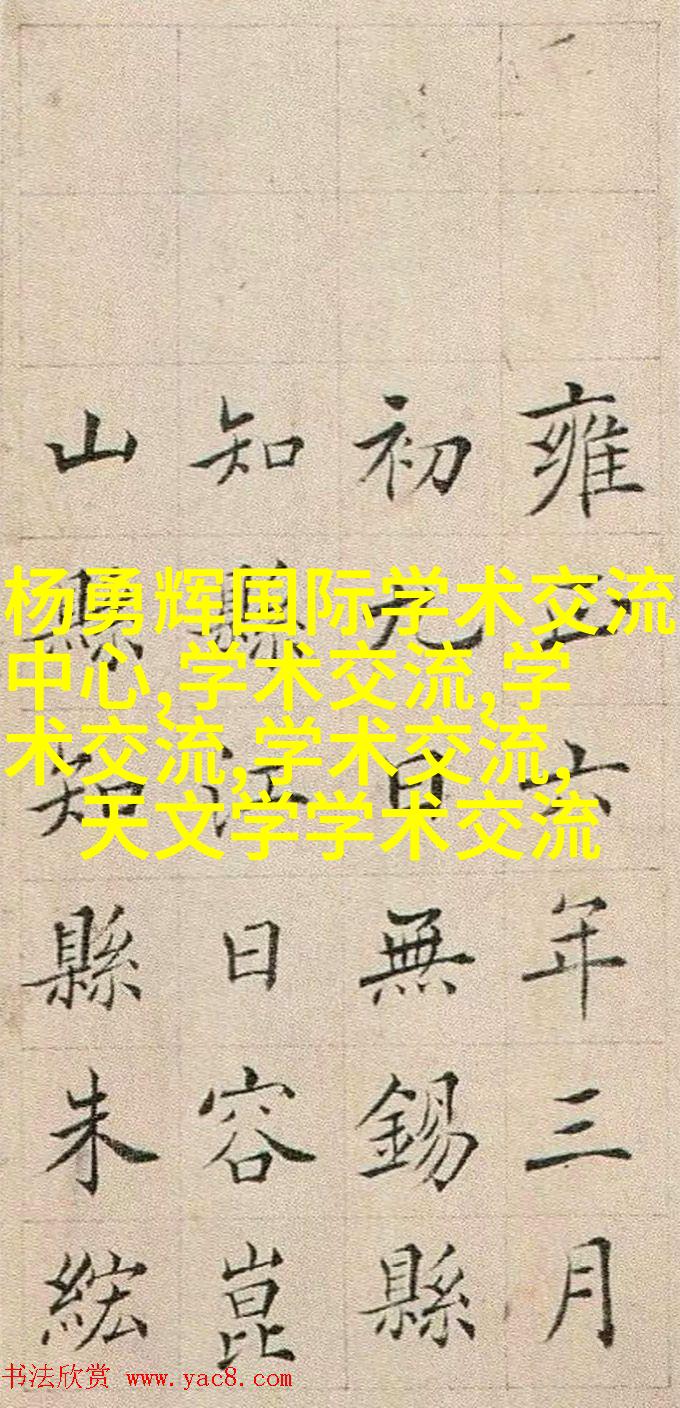 雍正六年三月
初九日無錫縣
知縣江日容崑
山縣知縣朱綋
杨勇辉国际学术交流
中心,学术交流,学
术交流,学术交流,
天文学学术交流
书法欣赏 www.yac8.com